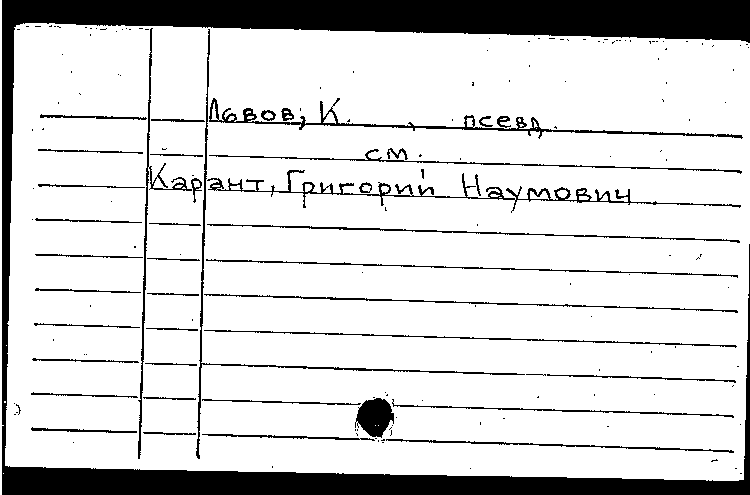 Львов, К. , псевд.
см.
Карант, Григорий Наумович.